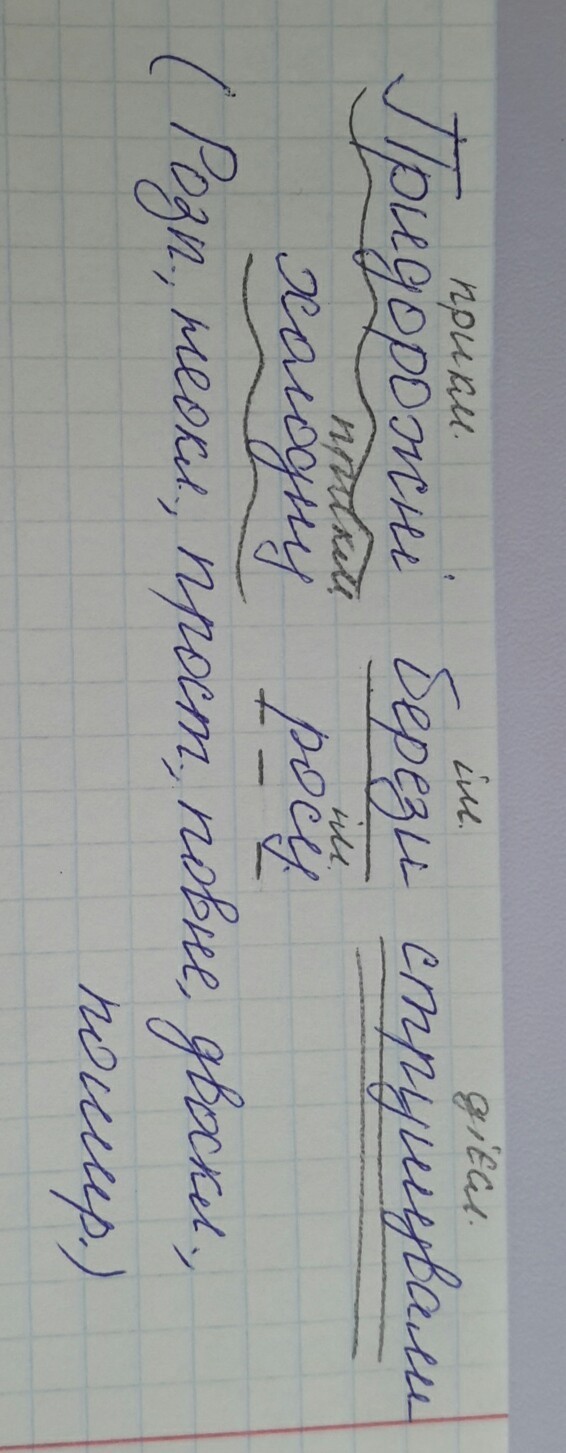 прикм. ім. дієсл.
Придорожні берези струшували
прикм ім.
холодну росу
(Розп., неокл., прост., повне, двоскл.,
пошир.)